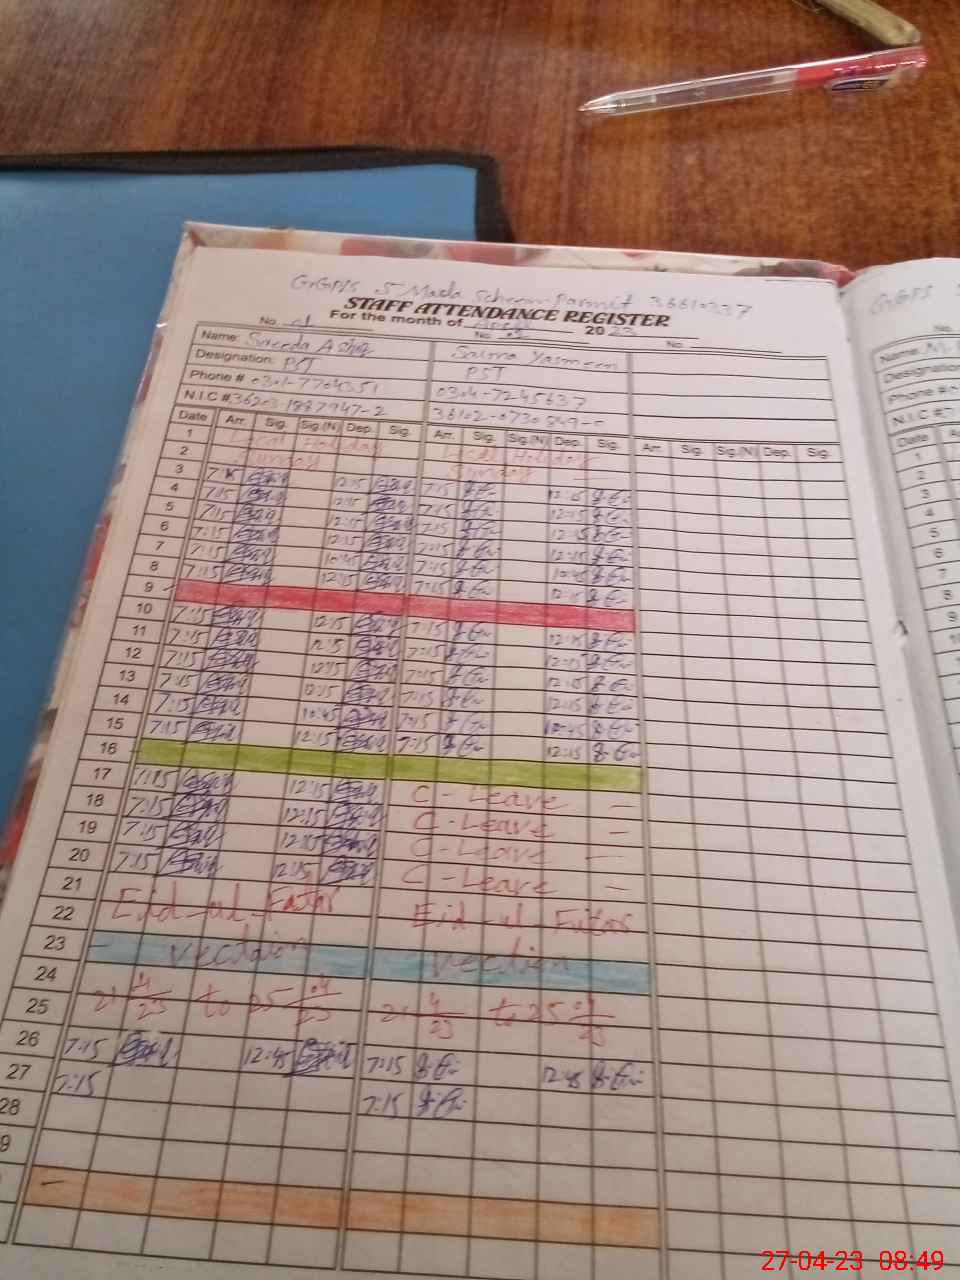 GGPS 5 Marla Scheem Parmit 36610237
STAFF ATTENDANCE REGISTER
For the month of April 2023
No 01 No 02 No
Name: Saeeda Ashiq Salma Yasmeen
Designation: PST PST
Phone # 0301-7704351 0304-7245637
N.I.C # 36203-1887947-2 36102-0730849-0
Date Arr. Sig. Sig.(N) Dep. Sig. Arr. Sig. Sig.(N) Dep. Sig. Arr. Sig. Sig.(N) Dep. Sig.
1 Local Holiday Local Holiday
2 Sunday Sunday
3 7:15 12:15 7:15 12:15
4 7:15 12:15 7:15 12:15
5 7:15 12:15 7:15 12:15
6 7:15 12:15 7:15 12:15
7 7:15 10:45 7:15 10:45
8 7:15 12:15 7:15 12:15
9
10 7:15 12:15 7:15 12:15
11 7:15 12:15 7:15 12:15
12 7:15 12:15 7:15 12:15
13 7:15 12:15 7:15 12:15
14 7:15 10:45 7:15 10:45
15 7:15 12:15 7:15 12:15
16
17 7:15 12:15 C-Leave
18 7:15 12:15 C-Leave
19 7:15 12:15 C-Leave
20 7:15 12:15 C-Leave
21
22 Eid-ul-Fatar Eid-ul-Futar
23
24
25 21 4/23 to 25 04/23 21 4/23 to 25 04/23
26 7:15 12:45 7:15 12:45
27 7:15 7:15
28
9
GGPS
No.
Name:
Designation
Phone #
N.I.C #
Date
1
2
3
4
5
6
7
8
9
10
27-04-23 08:49